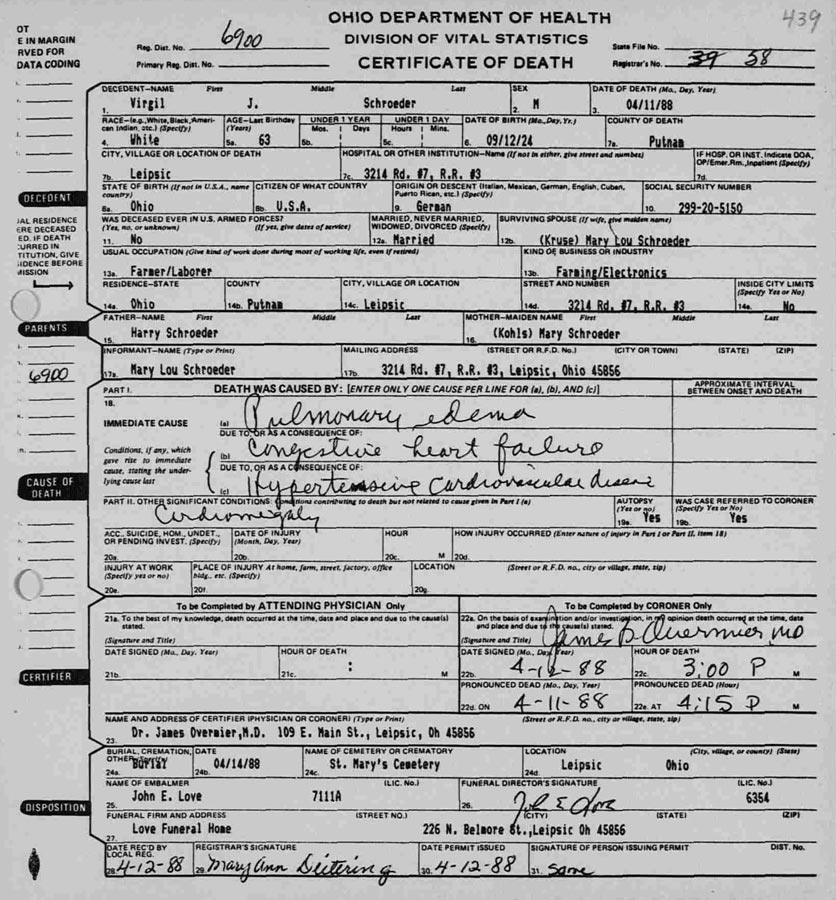 439
OHIO DEPARTMENT OF HEALTH
DIVISION OF VITAL STATISTICS
CERTIFICATE OF DEATH
OT
E IN MARGIN
RVED FOR
DATA CODING
Reg. Dist. No. 6900
Primary Reg. Dist. No.
State File No.
Registrar's No. 39 58
DECEDENT–NAME First Middle Last SEX DATE OF DEATH (Mo., Day, Year)
1. Virgil J. Schroeder 2. M 3. 04/11/88
RACE–(e.g., White, Black, Ameri- AGE–Last Birthday UNDER 1 YEAR UNDER 1 DAY DATE OF BIRTH (Mo., Day, Yr.) COUNTY OF DEATH
can Indian, etc.) (Specify) (Years) Mos. Days Hours Mins.
4. White 5a. 63 5b. 5c. 6. 09/12/24 7a. Putnam
CITY, VILLAGE OR LOCATION OF DEATH HOSPITAL OR OTHER INSTITUTION–Name (If not in either, give street and number) IF HOSP. OR INST. Indicate DOA,
OP/Emer. Rm., Inpatient (Specify)
7b. Leipsic 7c. 3214 Rd. #7, R.R. #3 7d.
DECEDENT
STATE OF BIRTH (If not in U.S.A., name CITIZEN OF WHAT COUNTRY ORIGIN OR DESCENT (Italian, Mexican, German, English, Cuban, SOCIAL SECURITY NUMBER
country) Puerto Rican, etc.) (Specify)
8a. Ohio 8b. U.S.A. 9. German 10. 299-20-5150
JAL RESIDENCE
ERE DECEASED
ED. IF DEATH
URRED IN
TITUTION, GIVE
IDENCE BEFORE
MISSION
WAS DECEASED EVER IN U.S. ARMED FORCES? MARRIED, NEVER MARRIED, SURVIVING SPOUSE (If wife, give maiden name)
(Yes, no, or unknown) (If yes, give dates of service) WIDOWED, DIVORCED (Specify)
11. No 12a. Married 12b. (Kruse) Mary Lou Schroeder
USUAL OCCUPATION (Give kind of work done during most of working life, even if retired) KIND OF BUSINESS OR INDUSTRY
13a. Farmer/Laborer 13b. Farming/Electronics
RESIDENCE-STATE COUNTY CITY, VILLAGE OR LOCATION STREET AND NUMBER INSIDE CITY LIMITS
(Specify Yes or No)
14a. Ohio 14b. Putnam 14c. Leipsic 14d. 3214 Rd. #7, R.R. #3 14e. No
PARENTS
FATHER–NAME First Middle Last MOTHER–MAIDEN NAME First Middle Last
15. Harry Schroeder 16. (Kohls) Mary Schroeder
6900
INFORMANT–NAME (Type or Print) MAILING ADDRESS (STREET OR R.F.D. No.) (CITY OR TOWN) (STATE) (ZIP)
17a. Mary Lou Schroeder 17b. 3214 Rd. #7, R.R. #3, Leipsic, Ohio 45856
PART I. DEATH WAS CAUSED BY: [ENTER ONLY ONE CAUSE PER LINE FOR (a), (b), AND (c)] APPROXIMATE INTERVAL
BETWEEN ONSET AND DEATH
18.
IMMEDIATE CAUSE (a) Pulmonary edema
DUE TO, OR AS A CONSEQUENCE OF:
Conditions, if any, which
gave rise to immediate
cause, stating the under-
lying cause last
(b) Congestive heart failure
DUE TO, OR AS A CONSEQUENCE OF:
(c) Hypertensive Cardiovascular disease
CAUSE OF
DEATH
PART II. OTHER SIGNIFICANT CONDITIONS: Conditions contributing to death but not related to cause given in Part I (a) AUTOPSY WAS CASE REFERRED TO CORONER
(Yes or no) (Specify Yes or No)
Cardiomegaly 19a. Yes 19b. Yes
ACC., SUICIDE, HOM., UNDET., DATE OF INJURY HOUR HOW INJURY OCCURRED (Enter nature of injury in Part I or Part II, item 18)
OR PENDING INVEST. (Specify) (Month, Day, Year)
20a. 20b. 20c. M 20d.
INJURY AT WORK PLACE OF INJURY At home, farm, street, factory, office LOCATION (Street or R.F.D. no., city or village, state, zip)
(Specify yes or no) bldg., etc. (Specify)
20e. 20f. 20g.
To be Completed by ATTENDING PHYSICIAN Only To be Completed by CORONER Only
21a. To the best of my knowledge, death occurred at the time, date and place and due to the cause(s)
stated.
(Signature and Title)
22a. On the basis of examination and/or investigation, in my opinion death occurred at the time, date
and place and due to the cause(s) stated.
(Signature and Title) James B Overmier, MD
DATE SIGNED (Mo., Day, Year) HOUR OF DEATH DATE SIGNED (Mo., Day, Year) HOUR OF DEATH
21b. 21c. : M 22b. 4-12-88 22c. 3:00 P M
CERTIFIER
PRONOUNCED DEAD (Mo., Day, Year) PRONOUNCED DEAD (Hour)
22d. ON 4-11-88 22e. AT 4:15 P M
NAME AND ADDRESS OF CERTIFIER (PHYSICIAN OR CORONER) (Type or Print) (Street or R.F.D. no., city or village, state, zip)
23. Dr. James Overmier, M.D. 109 E. Main St., Leipsic, Oh 45856
BURIAL, CREMATION, DATE NAME OF CEMETERY OR CREMATORY LOCATION (City, village, or county) (State)
OTHER (Specify)
24a. Burial 24b. 04/14/88 24c. St. Mary's Cemetery 24d. Leipsic Ohio
NAME OF EMBALMER (LIC. No.) FUNERAL DIRECTOR'S SIGNATURE (LIC. No.)
25. John E. Love 7111A 26. John E Love 6354
DISPOSITION
FUNERAL FIRM AND ADDRESS (STREET NO.) (CITY) (STATE) (ZIP)
27. Love Funeral Home 226 N. Belmore St., Leipsic Oh 45856
DATE REC'D BY REGISTRAR'S SIGNATURE DATE PERMIT ISSUED SIGNATURE OF PERSON ISSUING PERMIT DIST. No.
LOCAL REG.
28. 4-12-88 29. Mary Ann Deitering 30. 4-12-88 31. Same